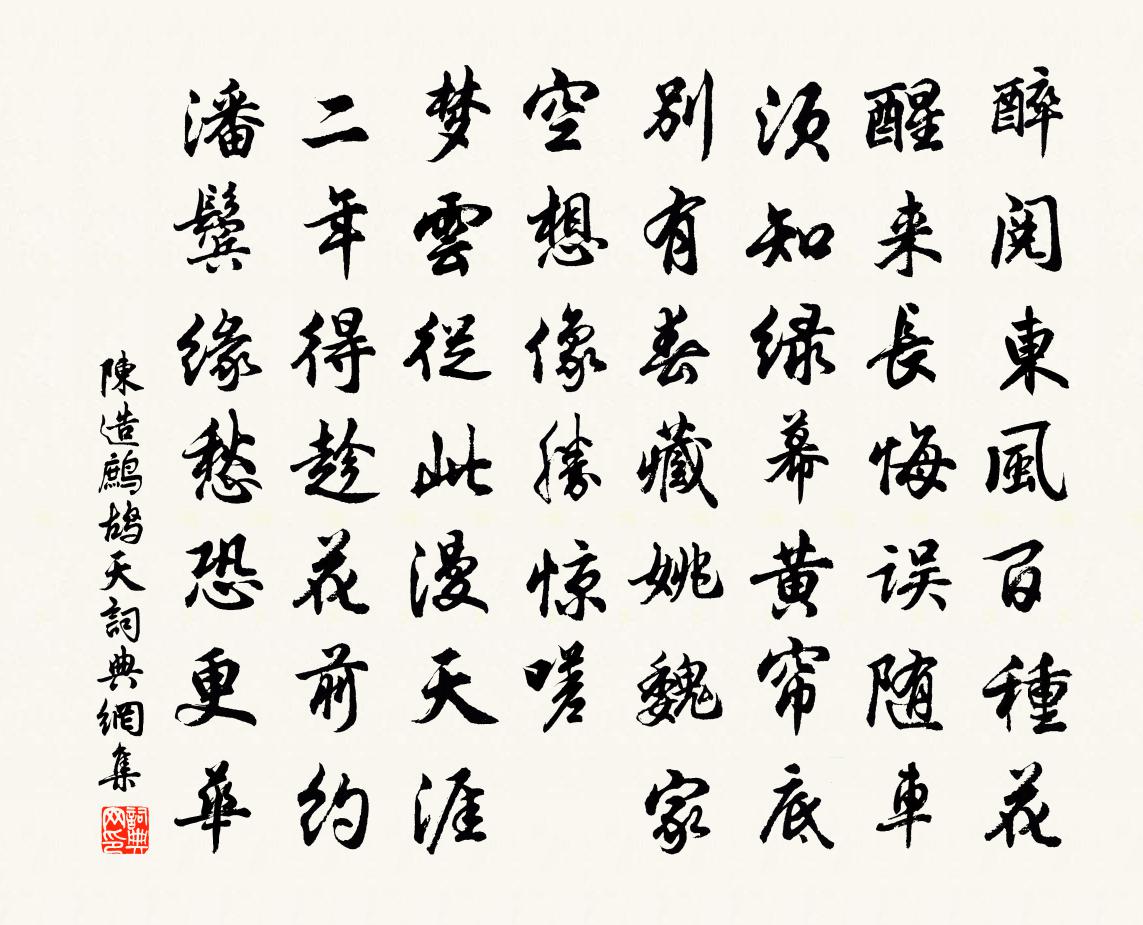 醉阅東風百種花
醒来長悔误随車
须知绿幕黄帘底
别有春藏姚魏家
空想像勝惊嗟
梦雲從此漫天涯
二年得趁花前约
潘鬓缘愁恐更華
陳造鷓鴣天詞典網集
詞典网印